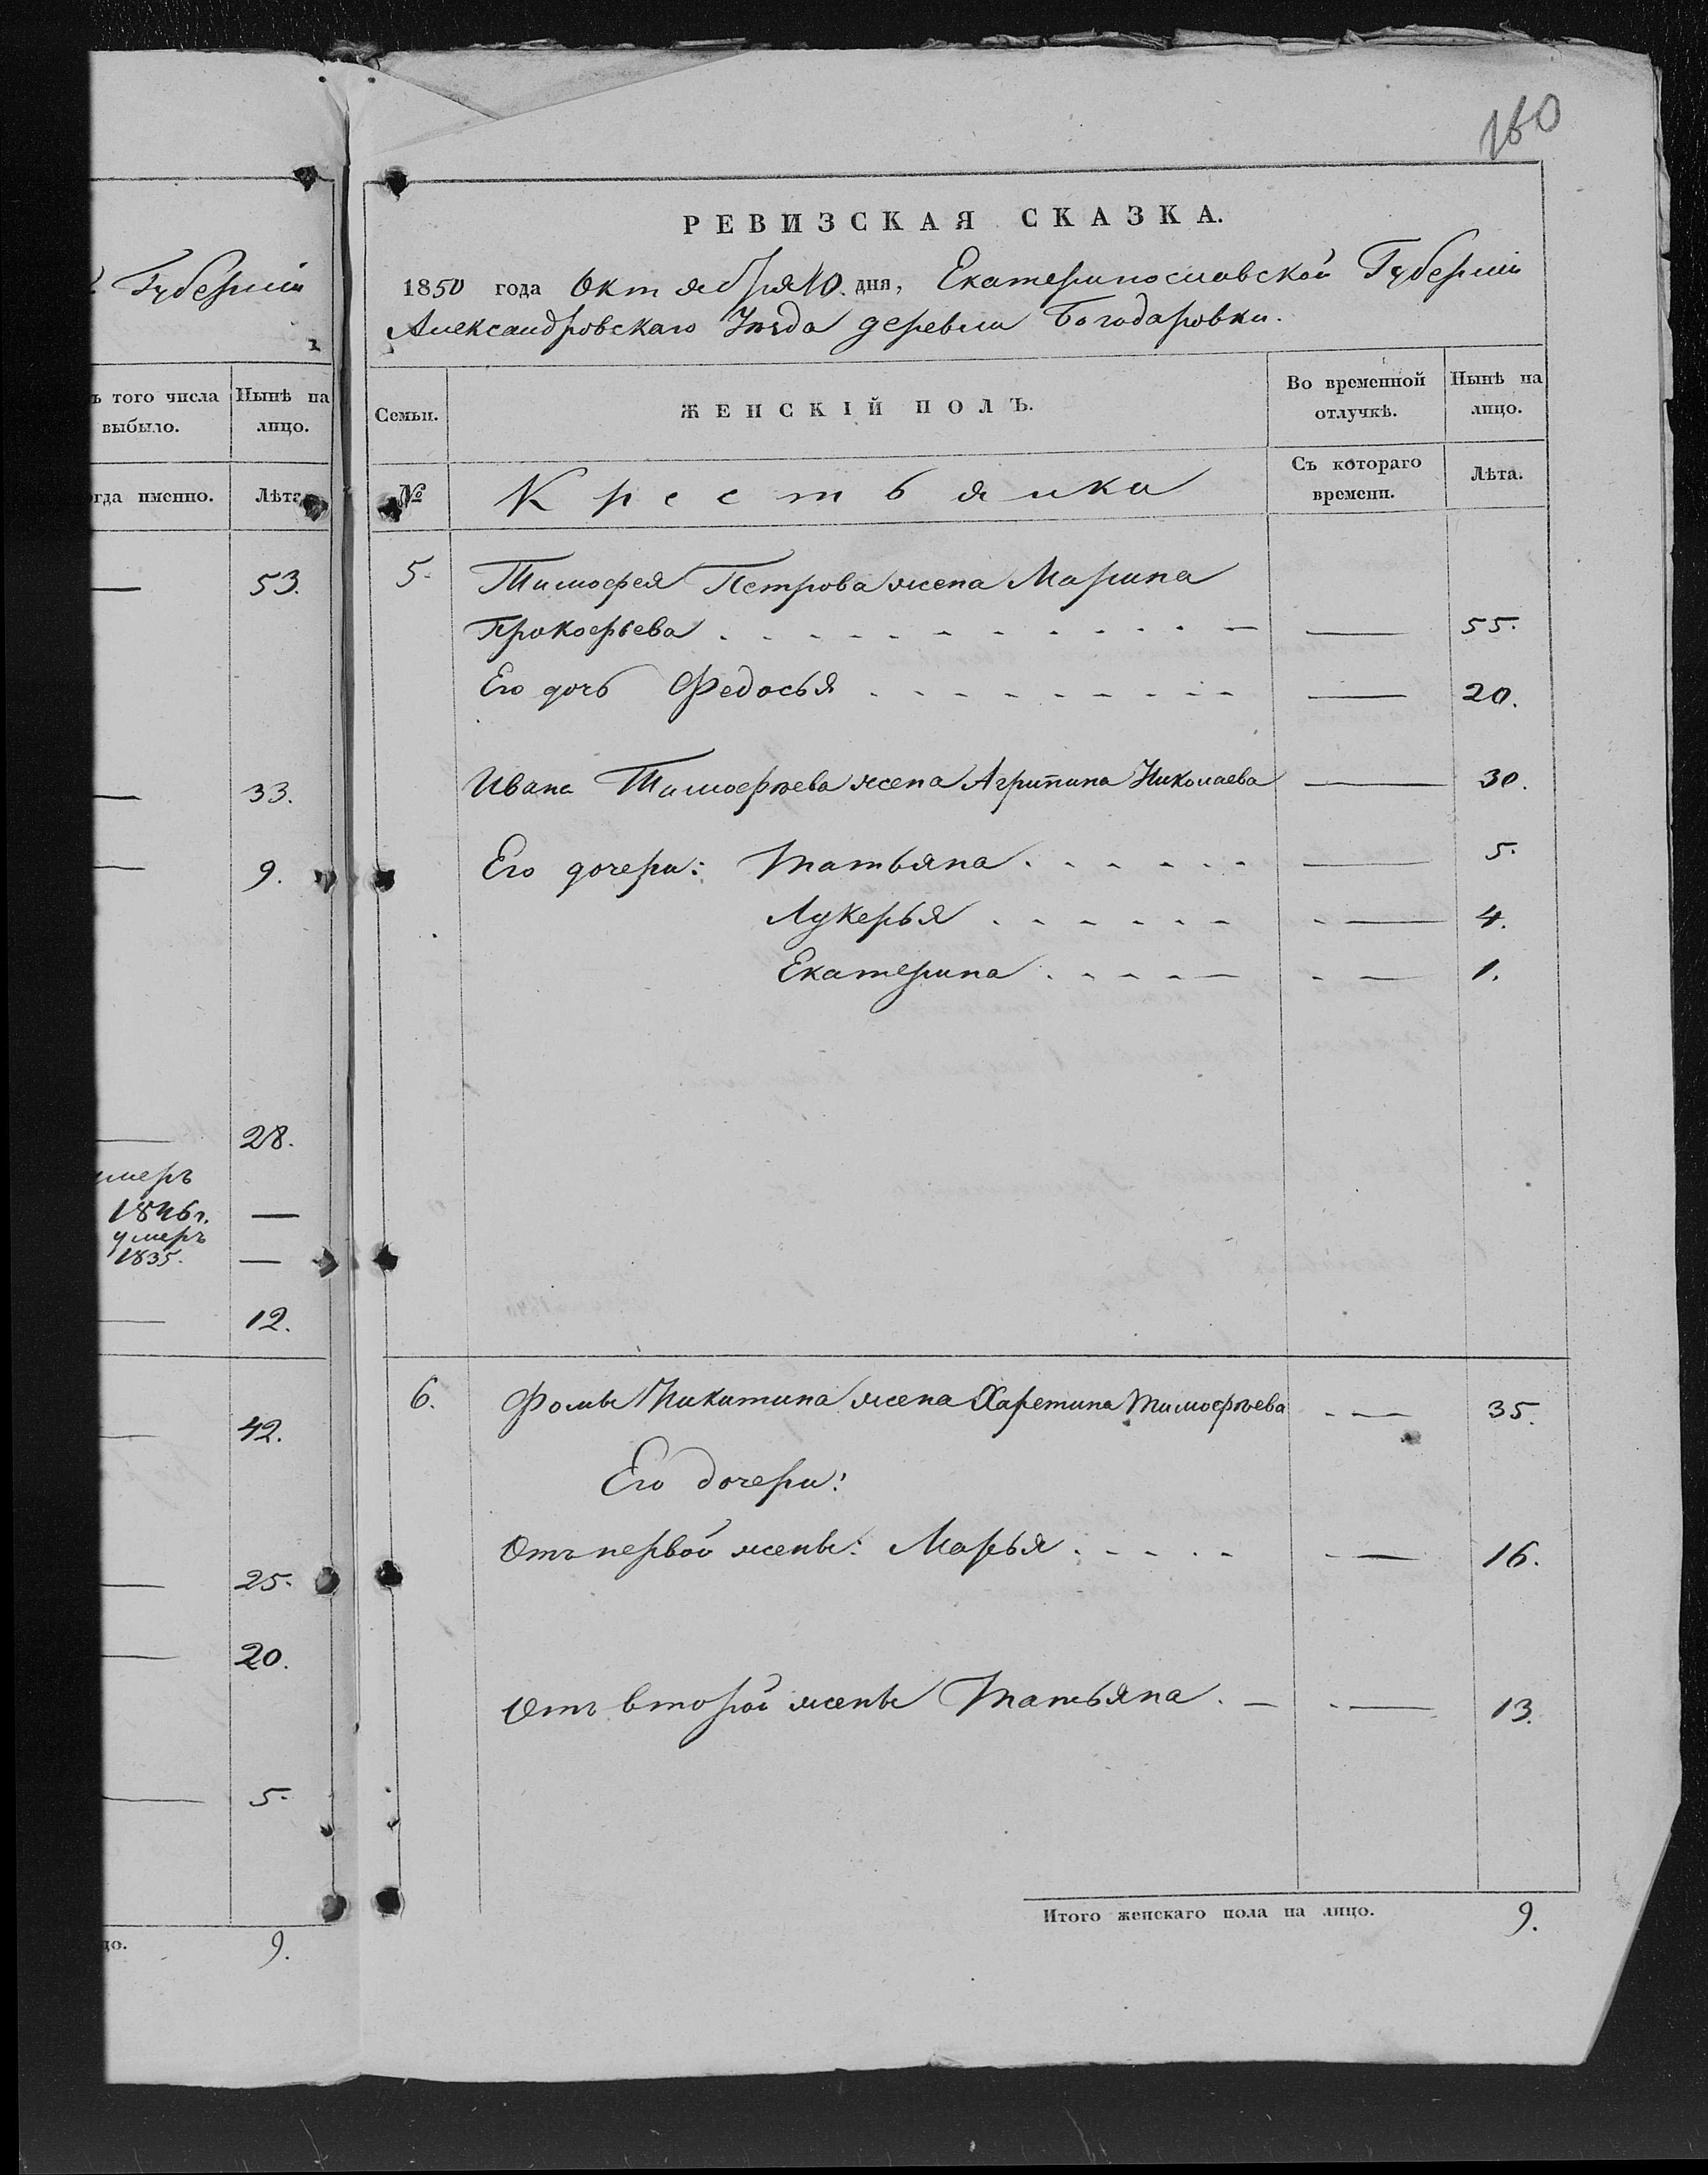 160
Губерніи
ъ того числа выбыло.
Нынѣ на лицо.
огда именно.
Лѣта
53.
33.
9.
28.
умеръ
1846 г.
умеръ
1835.
12.
42.
25.
20.
5.
цо.
9.
РЕВИЗСКАЯ СКАЗКА.
1850 года Октября 10. дня, Екатеринославской Губерніи
Александровскаго Уѣзда деревни Богодаровки.
Семьи.
ЖЕНСКІЙ ПОЛЪ.
Во временной отлучкѣ.
Нынѣ на лицо.
№
Крестьянки
Съ котораго времени.
Лѣта.
5. Тимофея Петрова жена Марина
Прокофьева 55.
Его дочь Федосья 20.
Ивана Тимофѣева жена Агрипина Николаева 30.
Его дочери: Татьяна 5.
Лукерья 4.
Екатерина 1.
6. Фомы Никитина жена Харетина Тимофѣева 35.
Его дочери:
Отъ первой жены: Марья 16.
Отъ второй жены Татьяна 13.
Итого женскаго пола на лицо. 9.